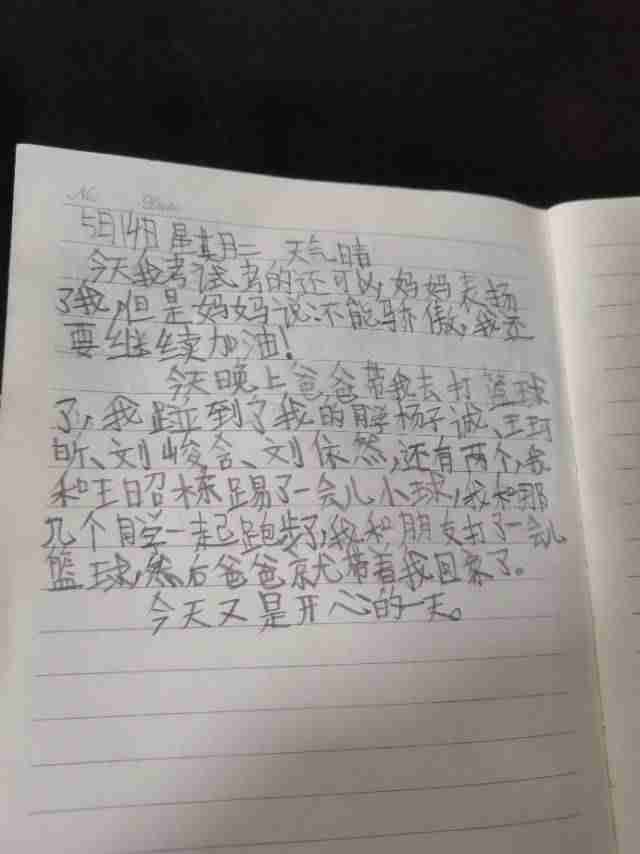 No.        Date
5月14日 星期二 天气晴
今天我考试考的还可以,妈妈表扬
了我,但是妈妈说:不能骄傲,我还
要继续加油!
今天晚上爸爸带我去打篮球
了,我碰到了我的同学杨子诚、王珂
昕、刘峻含、刘依然,还有两个,我
和王昭栋踢了一会儿小球,我和那
几个同学一起跑步了,我和朋友打了一会儿
篮球,然后爸爸就带着我回家了。
今天又是开心的一天。